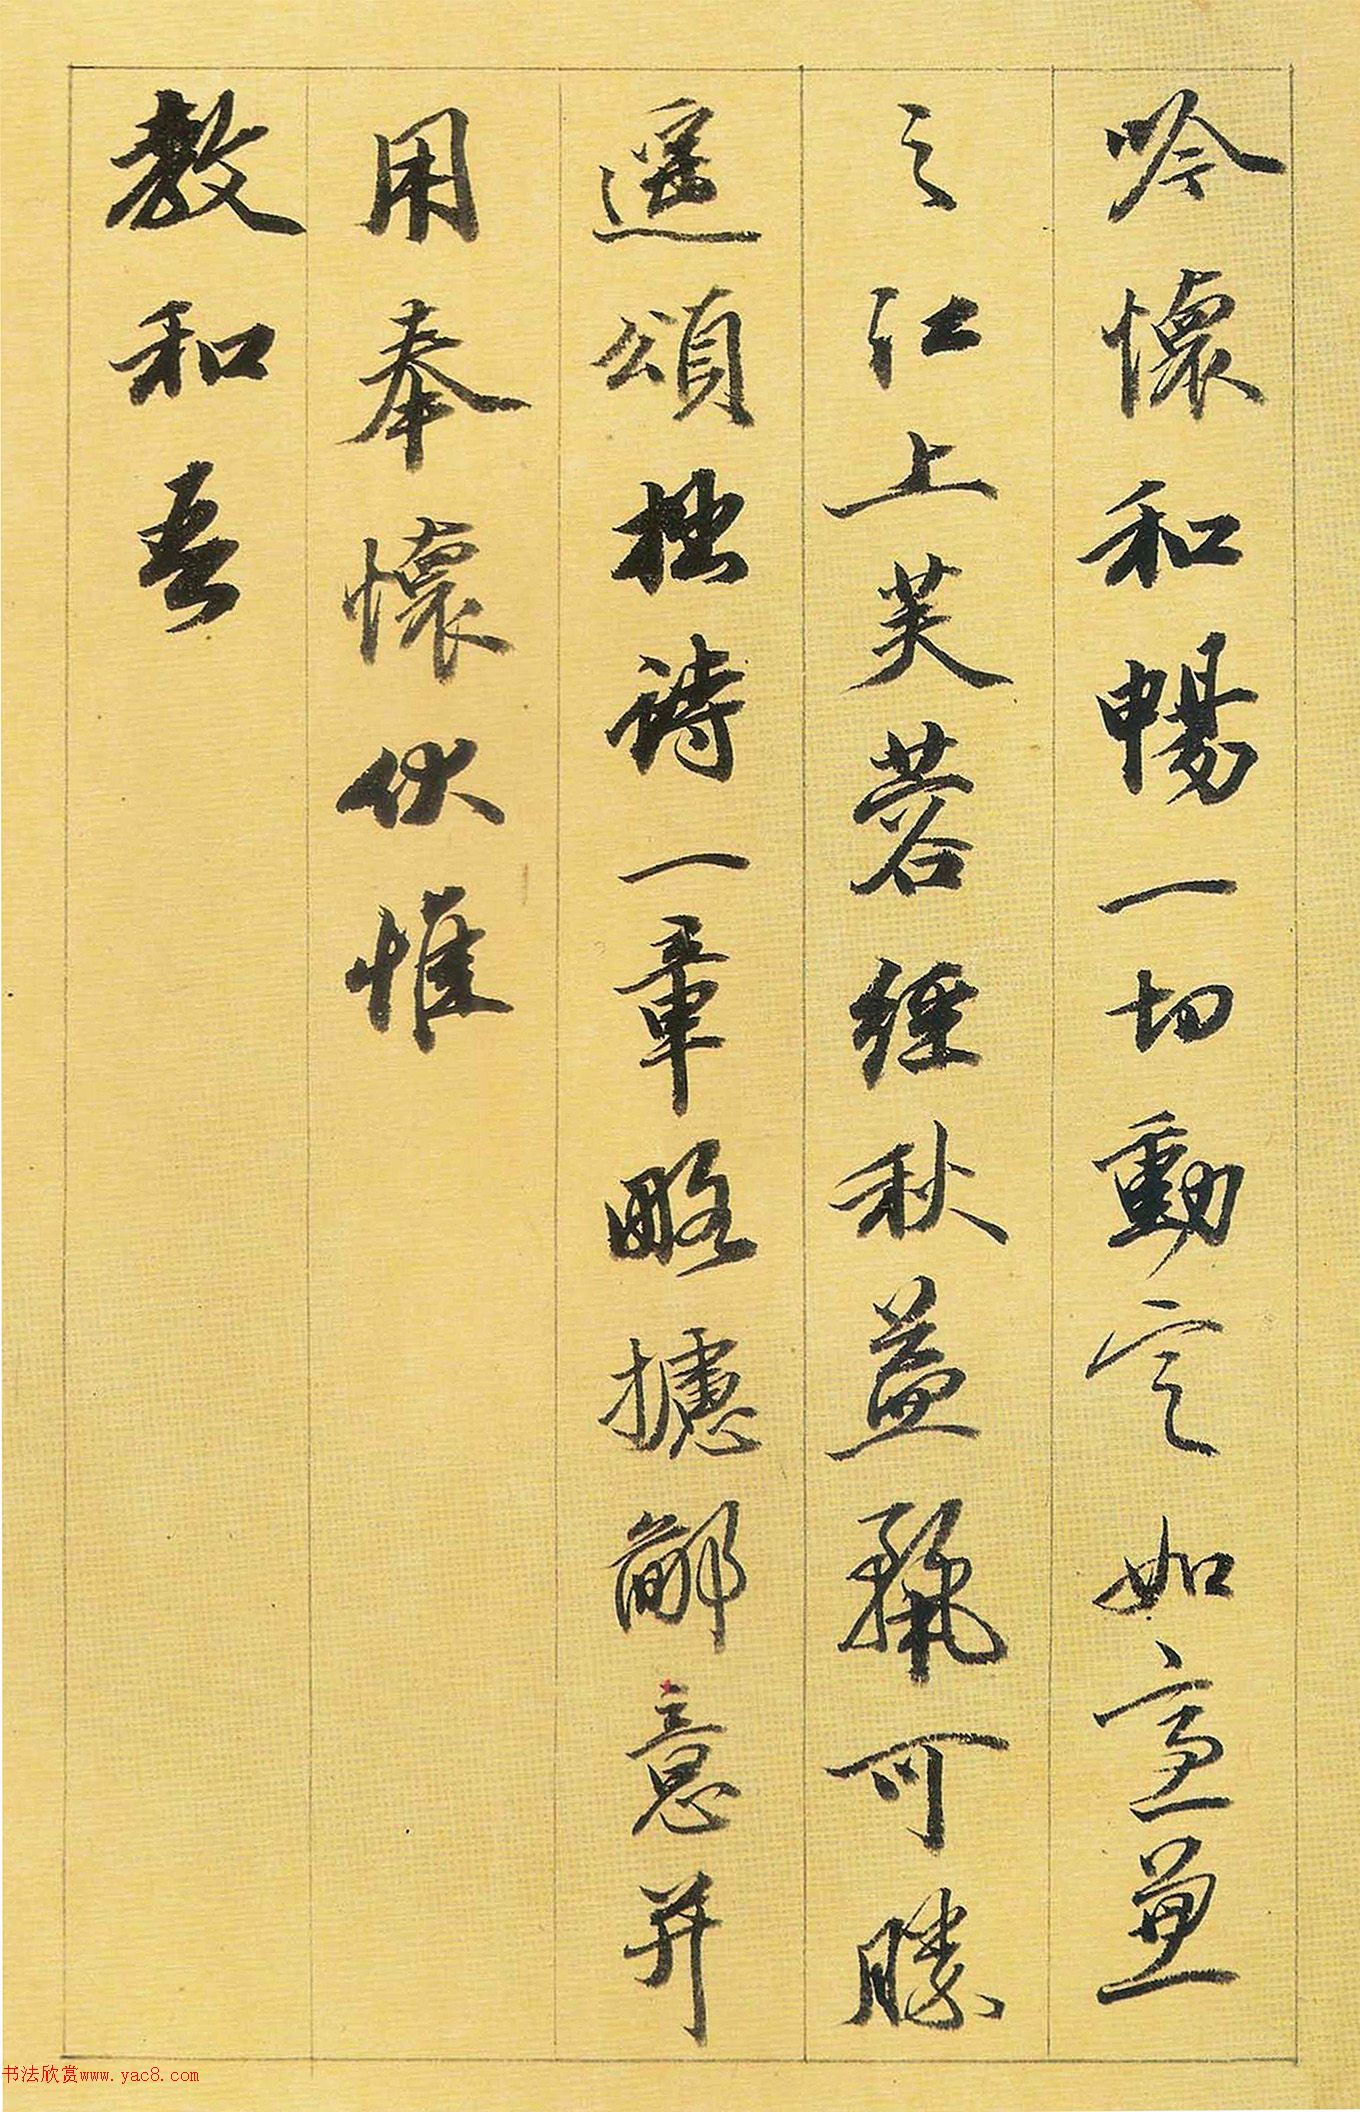 吟懷和暢一切動定如宜兼
之江上芙蓉經秋益可勝
遥頌拙詩一章略攄鄙意并
用奉懷伏惟
教和吾
书法欣赏www.yac8.com